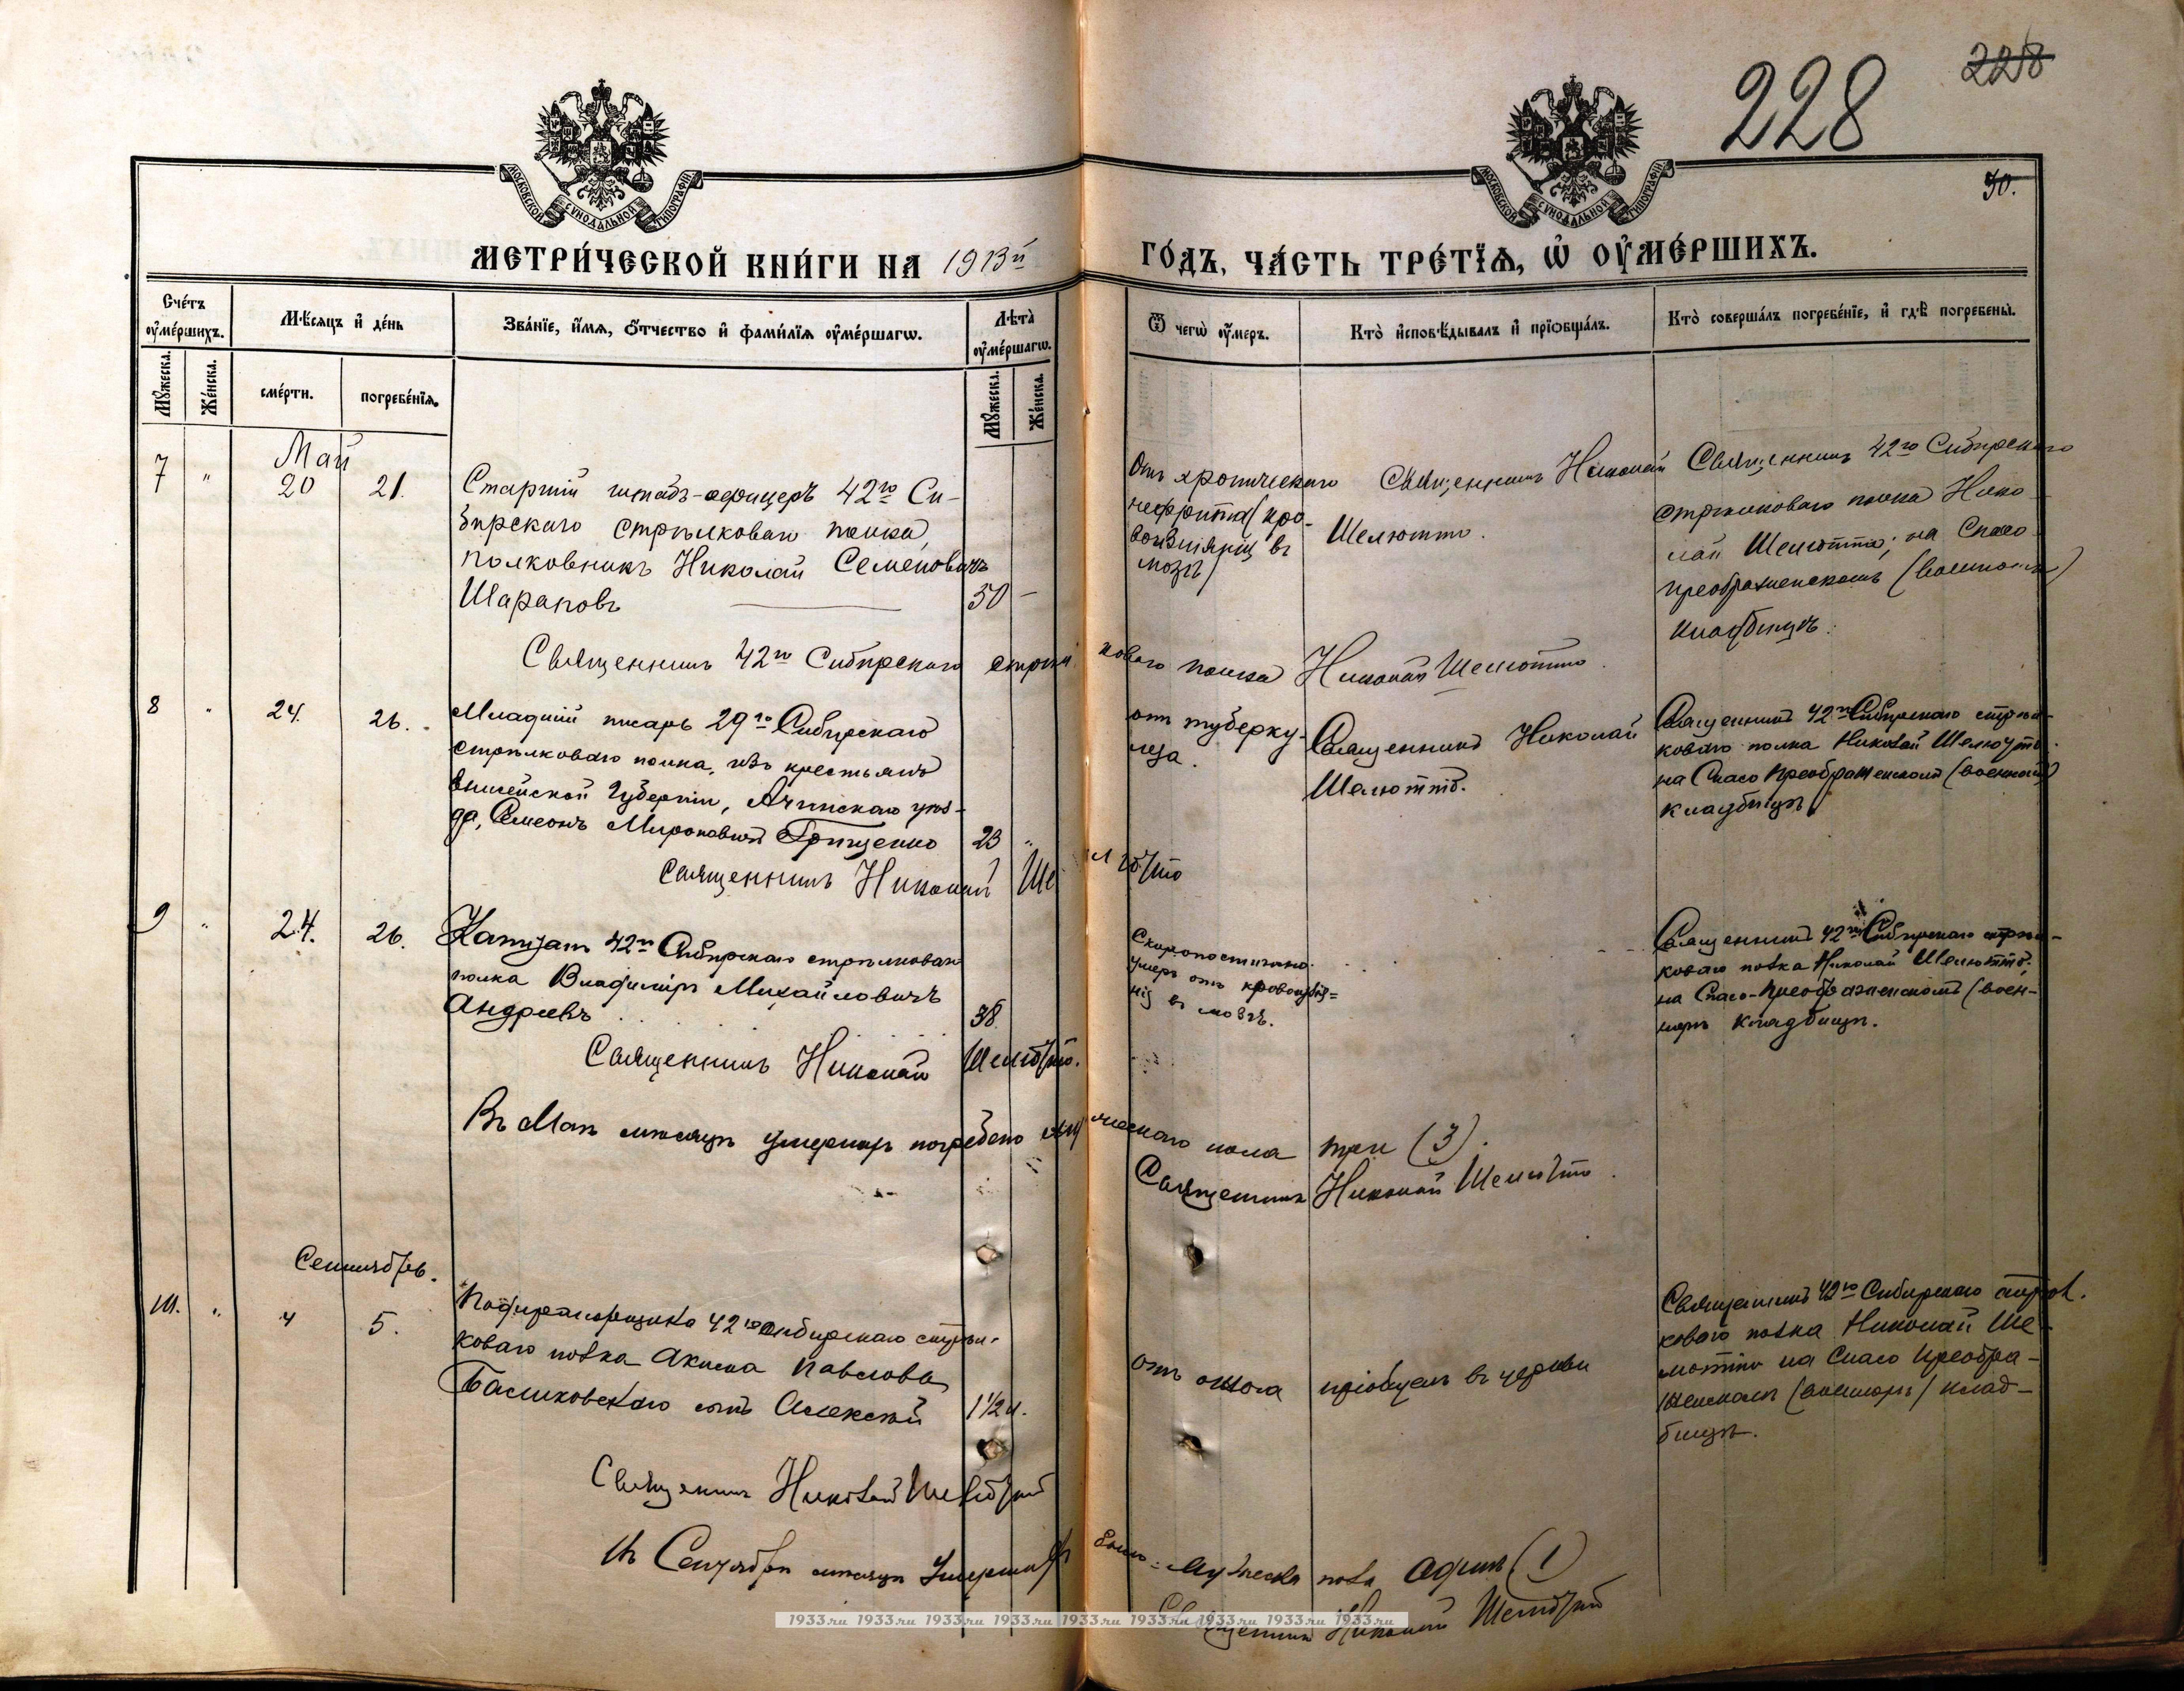 228
228
МОСКОВСКОЙ СУНОДАЛЬНОЙ ТИПОГРАФІИ
МОСКОВСКОЙ СУНОДАЛЬНОЙ ТИПОГРАФІИ
30.
МЕТРИ́ЧЕСКОЙ КНИ́ГИ НА 1913й
ГО́ДЪ, ЧА́СТЬ ТРЕ́ТЇѦ, Ѡ҆ ОУ҆МЕ́РШИХЪ.
Сче́тъ оу҆ме́ршихъ.
Мѣ́сяцъ и҆ де́нь
Зва́нїе, и҆́мѧ, ѻ҆́тчество и҆ фами́лїѧ оу҆ме́ршагѡ.
Лѣ́та оу҆ме́ршагѡ.
Ѿ чегѡ̀ оу҆́меръ.
Кто̀ и҆сповѣ́дывалъ и҆ прїѡбща́лъ.
Кто̀ соверша́лъ погребе́нїе, и҆ гдѣ̀ погребены̀.
Мꙋ́жеска.
Же́нска.
сме́рти.
погребе́нїѧ.
Мꙋ́жеска.
Же́нска.
Май
7 " 20 21.
Старшій штабъ-офицеръ 42го Си-
бирскаго Стрѣлковаго полка,
полковникъ Николай Семеновичъ
Шараповъ — 50 —
Отъ хроническаго
нефрита (кро-
воизліянія въ
мозгъ)
Священникъ Николай
Шелютто.
Священникъ 42го Сибирскаго
стрѣлковаго полка Нико-
лай Шелютто; на Спасо-
преображенскомъ (военномъ)
кладбищѣ.
Священникъ 42го Сибирскаго стрѣлковаго полка Николай Шелютто.
8 " 24. 26.
Младшій писарь 29го Сибирскаго
стрѣлковаго полка, изъ крестьянъ
Енисейской Губерніи, Ачинскаго уѣз-
да, Симеонъ Мироновичъ Грищенко 23 "
отъ туберку-
леза.
Священникъ Николай
Шелютто.
Священникъ 42го Сибирскаго стрѣл-
коваго полка Николай Шелютто.
на Спасо Преображенскомъ (военномъ)
кладбищѣ
Священникъ Николай Шелютто
9 " 24. 26.
Капитанъ 42го Сибирскаго стрѣлковаго
полка Владиміръ Михайловичъ
Андреевъ 38.
Скоропостижно
умеръ отъ кровоизлія=
нія въ мозгъ.
Священникъ 42го Сибирскаго стрѣл-
коваго полка Николай Шелютто;
на Спасо-Преображенскомъ (воен-
номъ кладбищѣ.
Священникъ Николай Шелютто.
Въ Маѣ мѣсяцѣ умершихъ погребено мужескаго пола три (3).
Священникъ Николай Шелютто.
Сентябрь.
10. " 4 5.
Подпрапорщика 42го Сибирскаго стрѣл-
коваго полка Акима Павлова
сынъ Алексѣй 1 1/2 м.
пріобщенъ въ церкви
Священникъ 42го Сибирскаго стрѣл.
коваго полка Николай Ше-
лютто на Спасо Преобра-
женскомъ (военномъ) клад-
бищѣ.
Священникъ Николай Шелютто
Въ Сентябрѣ мѣсяцѣ умершихъ было мужеска пола одинъ (1)
Священникъ Николай Шелютто
1933.ru 1933.ru 1933.ru 1933.ru 1933.ru 1933.ru 1933.ru 1933.ru 1933.ru